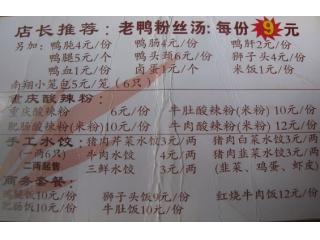 店长推荐：老鸭粉丝汤：每份9元
另加：鸭腿4元/份 鸭肠4元/份 鸭肝2元/份
鸭腿5元/个 鸭头颈6元/份 狮子头4元/份
鸭血1元/份 卤蛋1元/个 米饭1元/份
南翔小笼包5元/笼（6只）
重庆酸辣粉：
重庆酸辣粉 6元/份 牛肚酸辣粉(米粉)10元/份
肥肠酸辣粉(米粉)10元/份 牛肉酸辣粉(米粉)12元/份
手工水饺：猪肉芹菜水饺3元/两 猪肉白菜水饺3元/两
（一两6只） 牛肉水饺 4元/两 猪肉韭菜水饺3元/两
二两起售 三鲜水饺 3元/两 （韭菜、鸡蛋、虾皮）
商务套餐：
鸭腿饭10元/份 狮子头饭9元/份 红烧牛肉饭12元/份
肥肠饭10元/份 牛肚饭10元/份